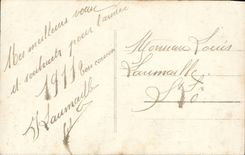 Mes meilleurs vœux
et souhaits pour l'année
1911 bon cousin
Laumaille
Monsieur Louis
Laumaille